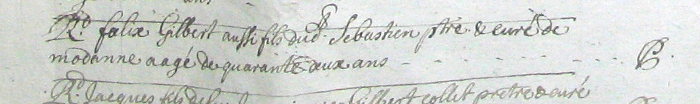 Rd. felix Gilbert aussi fils dud. Sebastien ptre. & curé de
modanne aagé de quarante deux ans - - - - - - - P.
Rd. Jacques fils de Gilbert collet pretre & curé